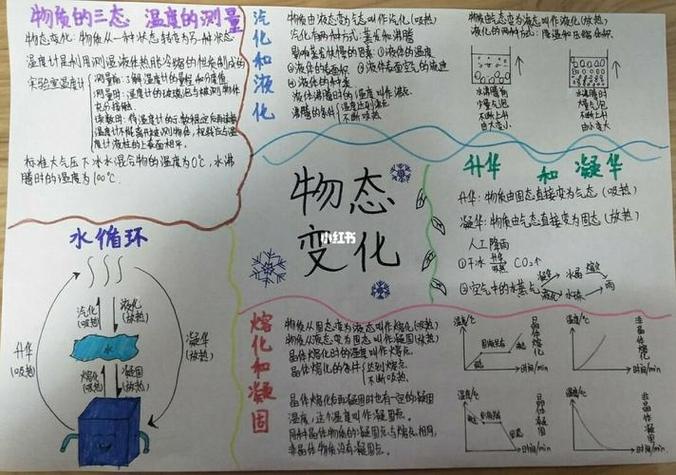 物质的三态 温度的测量
物态变化：物质从一种状态转变为另一种状态
温度计是利用测温液体热胀冷缩的性质制成的
实验室温度计
测量前：了解温度计的量程和分度值
测量时：温度计的玻璃泡与被测物体
充分接触
读数时：待温度计的示数稳定后再读数
温度计不能离开被测物体，视线应与温
度计液柱的上表面相平.
标准大气压下冰水混合物的温度为0℃，水沸
腾时的温度为100℃.
汽化和液化
物质由液态变为气态叫作汽化(吸热)
汽化有两种方式：蒸发和沸腾
影响蒸发快慢的因素：①液体的温度
②液体的表面积 ③液体表面空气的流速
④液体的种类
液体沸腾时的温度叫作沸点.
沸腾的条件
温度达到沸点
不断吸热
物质由气态变为液态叫作液化(放热)
液化的两种方式：降温和压缩体积
水沸腾前
少量气泡
不断上升
由大变小
水沸腾时
大量气泡
不断上升
由小变大
物态
变化
小红书
升华和凝华
升华：物质由固态直接变为气态(吸热)
凝华：物质由气态直接变为固态(放热)
人工降雨
①干冰 升华 吸热 CO₂↑
②空气中的水蒸气
凝华 冰晶 熔化
液化 水珠
雨
水循环
升华
(吸热)
汽化
(吸热)
液化
(放热)
凝华
(放热)
水
熔化
(吸热)
凝固
(放热)
熔化和凝固
物质从固态变为液态叫作熔化(吸热)
物质从液态变为固态叫作凝固(放热)
晶体熔化时的温度叫作熔点
晶体熔化的条件
达到熔点
不断吸热
晶体熔化和凝固时也有一定的凝固
温度，这个温度叫作凝固点.
同种晶体物质的凝固点与熔点相同，
非晶体物质没有凝固点.
温度/℃
时间/min
晶体熔化
温度/℃
时间/min
非晶体熔化
温度/℃
时间/min
晶体凝固
温度/℃
时间/min
非晶体凝固